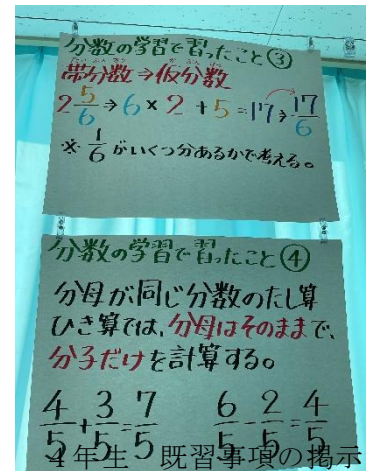 分数の学習で習ったこと③
帯分数→仮分数
2 5/6 → 6×2+5=17→ 17/6
※ 1/6 がいくつ分あるかで考える。
分数の学習で習ったこと④
分母が同じ分数のたし算
ひき算では、分母はそのままで、
分子だけを計算する。
4/5+3/5=7/5 6/5-2/5=4/5
4年生 既習事項の掲示